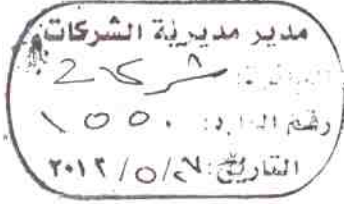 مدير مديرية الشركات
رقم الوارد: ١٥٥٠
التاريخ: ٢٧/٥/٢٠١٢